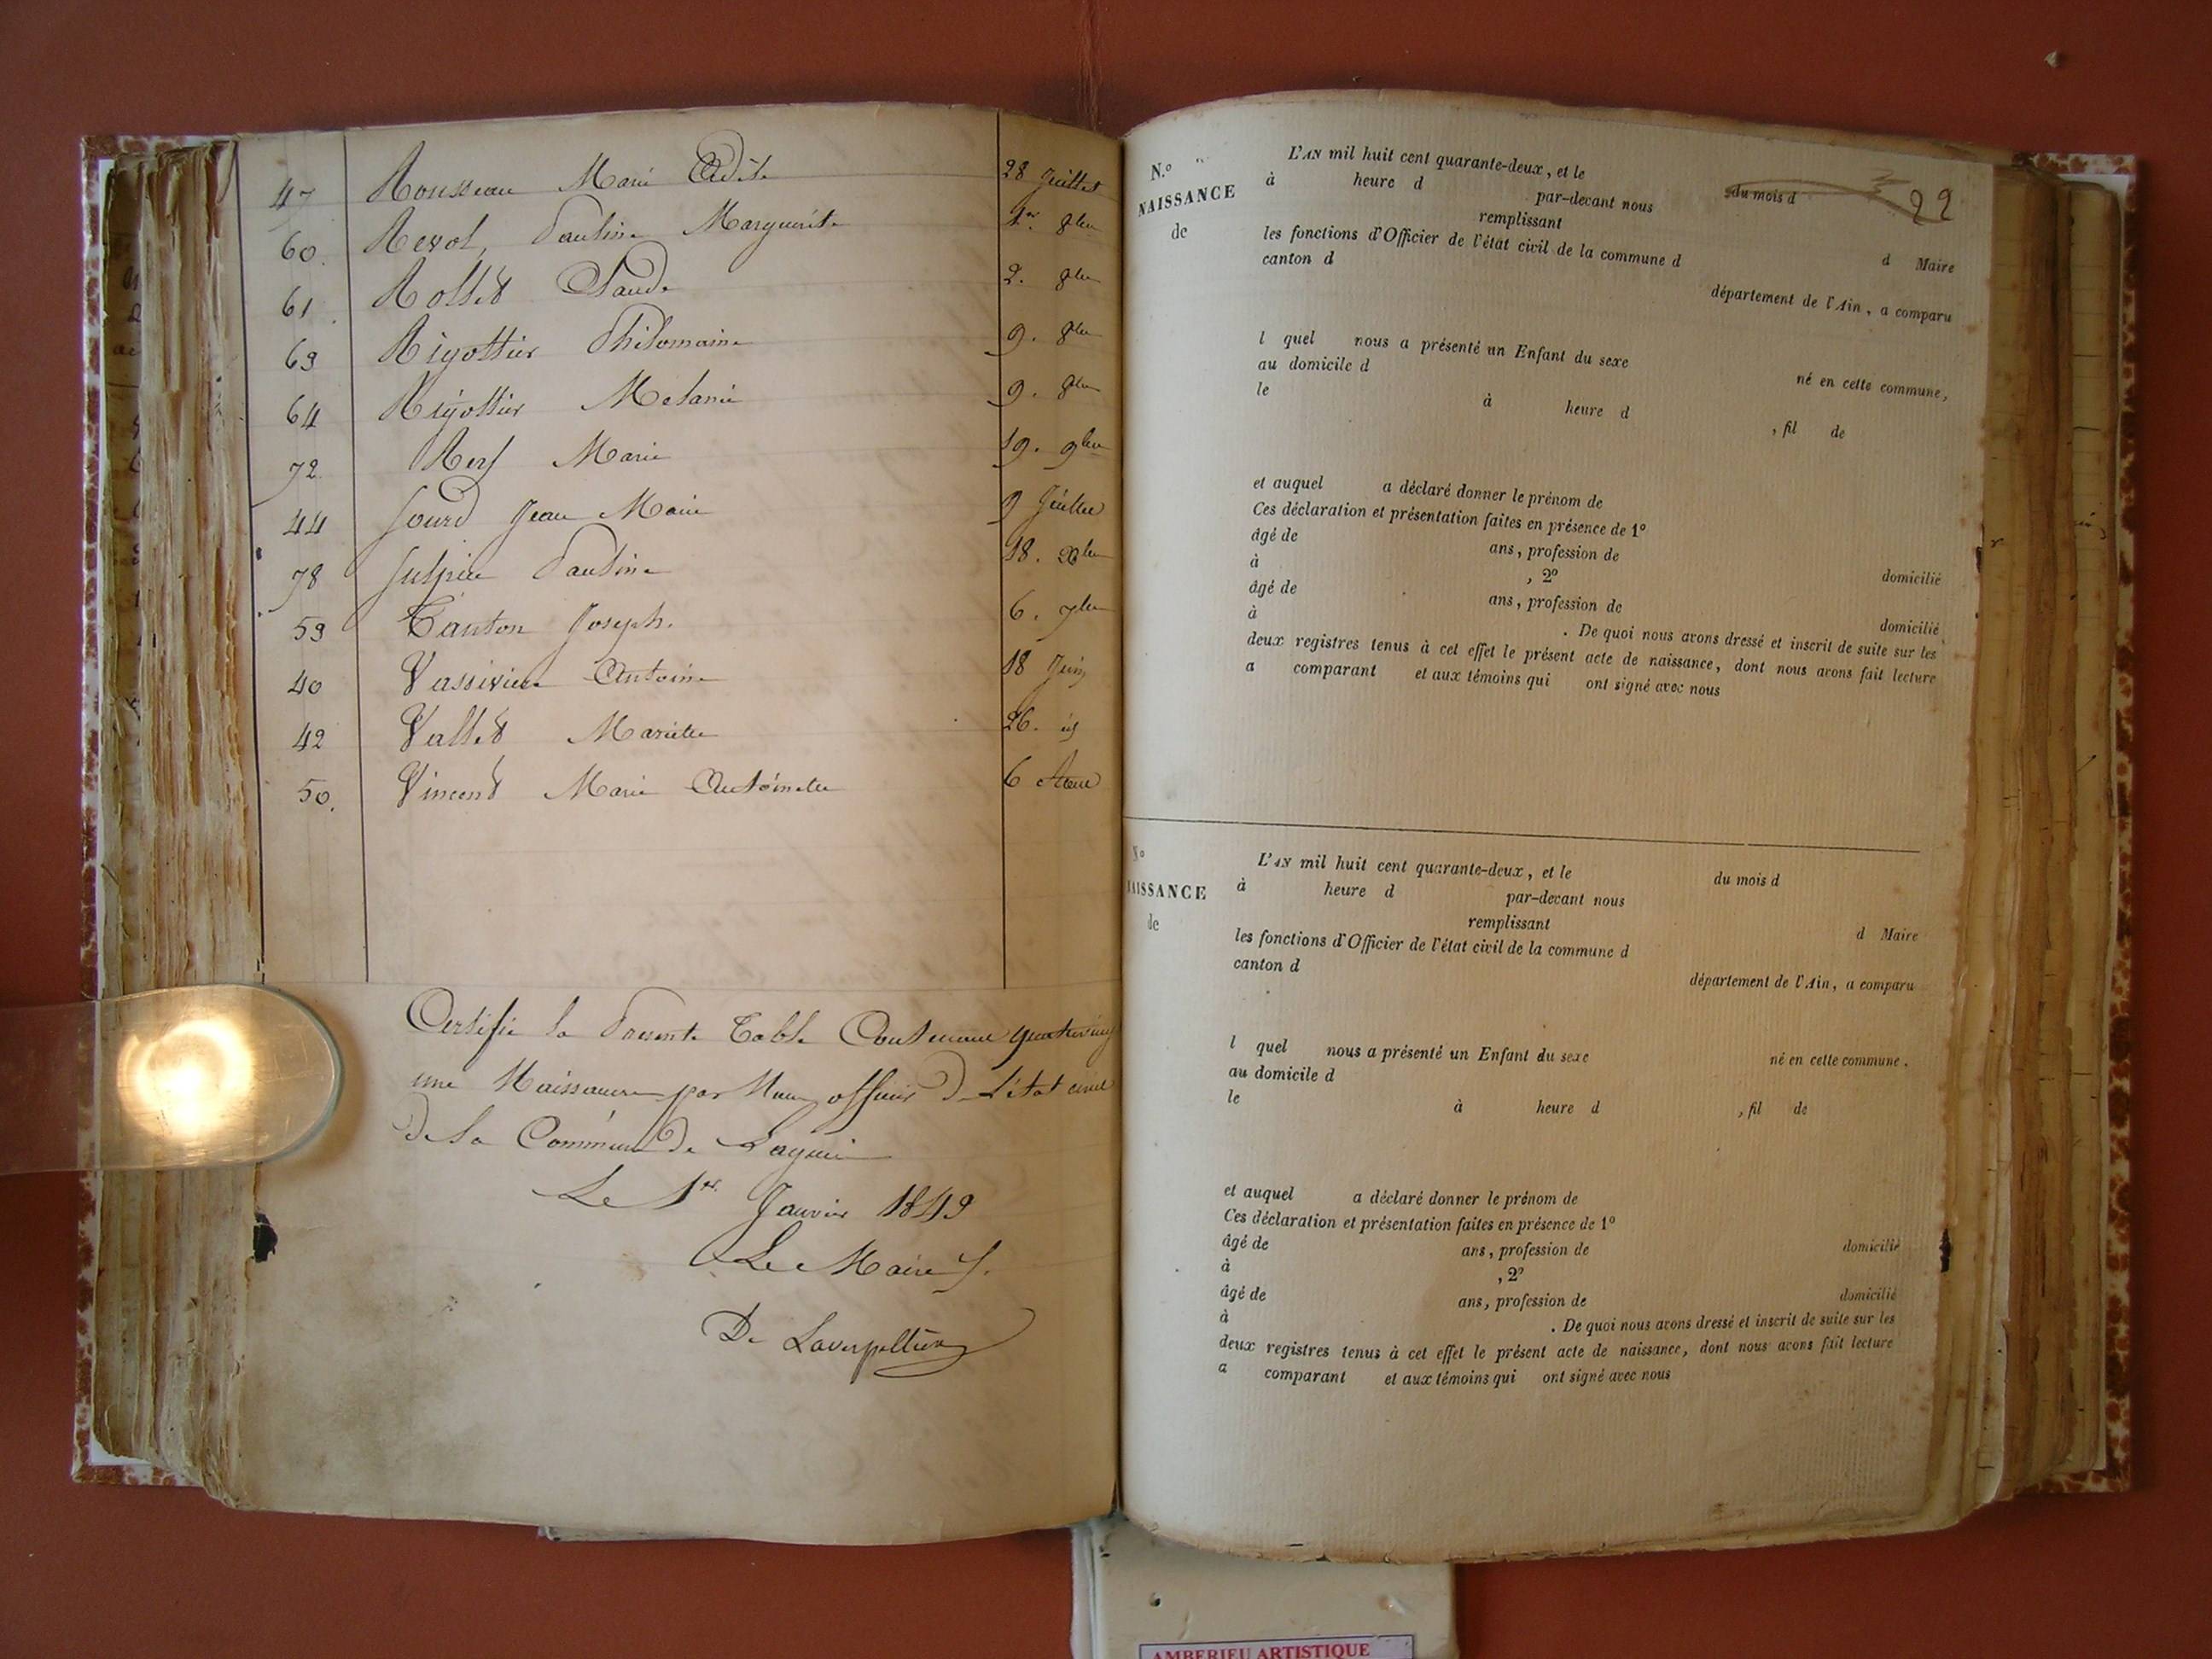 47 Rousseau Marie Adèle 28 Juillet
60. Revol Pauline Marguerite 1er 8bre
61. Rollet Claude 2. 8bre
63 Rigottier Philomaine 9. 8bre
64 Rigottier Melanie 9. 8bre
72 Rey Marie 19. 9bre
44 Sourd Jean Marie 9 Juillet
78 Sulpice Pauline 18. Xbre
59 Tanton Joseph. 6. 7bre
40 Vassivière Antoine 18 Juin
42 Vallet Mariette 26. id
50. Vincent Marie Antoinette 6
Certifié la Présente Table Contenant quatre vingt
une Naissances par Nous officier de L'état civil
De La Commune De Lagnieu
Le 1er Janvier 1849
Le Maire
De Laverpillière
22
N.o
NAISSANCE
de
L'AN mil huit cent quarante-deux, et le du mois d
à heure d par-devant nous
remplissant d Maire
les fonctions d'Officier de l'état civil de la commune d
canton d département de l'Ain, a comparu
l quel nous a présenté un Enfant du sexe né en cette commune,
au domicile d
le à heure d , fil de
et auquel a déclaré donner le prénom de
Ces déclaration et présentation faites en présence de 1o
âgé de ans, profession de domicilié
à , 2o
âgé de ans, profession de domicilié
à . De quoi nous avons dressé et inscrit de suite sur les
deux registres tenus à cet effet le présent acte de naissance, dont nous avons fait lecture
a comparant et aux témoins qui ont signé avec nous
No
NAISSANCE
de
L'AN mil huit cent quarante-deux, et le du mois d
à heure d par-devant nous
remplissant d Maire
les fonctions d'Officier de l'état civil de la commune d
canton d département de l'Ain, a comparu
l quel nous a présenté un Enfant du sexe né en cette commune.
au domicile d
le à heure d , fil de
et auquel a déclaré donner le prénom de
Ces déclaration et présentation faites en présence de 1o
âgé de ans, profession de domicilié
à , 2o
âgé de ans, profession de domicilié
à . De quoi nous avons dressé et inscrit de suite sur les
deux registres tenus à cet effet le présent acte de naissance, dont nous avons fait lecture
a comparant et aux témoins qui ont signé avec nous
AMBERIEU ARTISTIQUE